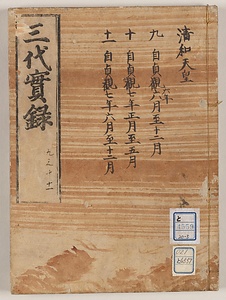 清和天皇
九 自貞觀六年八月至十二月
十 自貞觀七年正月至五月
十一 自貞觀七年六月至十二月
三代實録
九之十一
4559